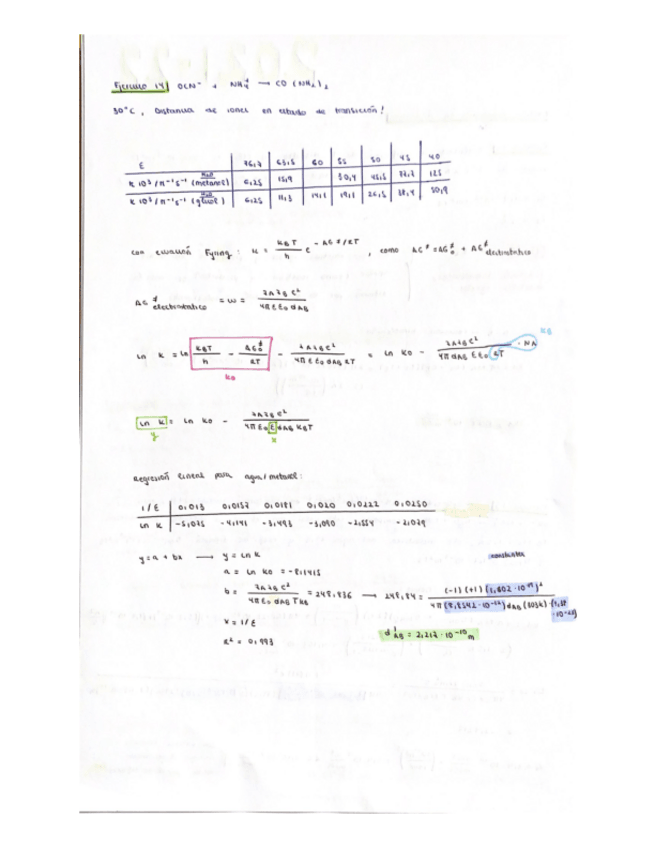 Ejercicio 14) OCN⁻ + NH₄⁺ → CO (NH₂)₂
30°C, Distancia de iones en estado de transición!
ε 76,7 63,5 60 55 50 45 40
k 10³ / M⁻¹ s⁻¹ (H₂O metanol) 6,25 15,9 30,4 45,5 125
k 10³ / M⁻¹ s⁻¹ (H₂O glicol) 6,25 11,3 14,5 19,1 26,5
con ecuación Eyring: k = kBT/h e^(-ΔG‡/RT), como ΔG‡ = ΔG‡₀ + ΔG‡electrostático
ΔG‡electrostático = w = zAzB e²/4π ε ε₀ dAB
kB
ln k = ln kBT/h - ΔG₀‡/RT - zAzB e²/4π ε ε₀ dAB RT = ln k₀ - zAzB e²/4π dAB ε ε₀ RT · NA
k₀
ln k = ln k₀ - zAzB e²/4π ε₀ ε dAB kBT
y x
Regresión lineal para agua/metanol:
1/ε 0,013 0,0157 0,0181 0,020 0,0222 0,0250
ln k -5,075 -4,141 -3,493 -3,090 -2,554 -2,079
y = a + bx → y = ln k constantes
a = ln k₀ = -8,1415
b = zAzB e²/4π ε₀ dAB T kB = 248,836 → 248,84 = (-1) (+1) (1,602 · 10⁻¹⁹)²/4π (8,8542 · 10⁻¹²) dAB (303K) · (1,38 · 10⁻²³)
x = 1/ε
R² = 0,993
dAB = 2,212 · 10⁻¹⁰ m